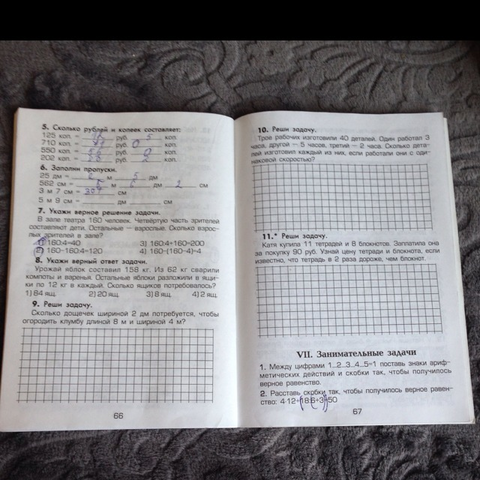 5. Сколько рублей и копеек составляет:
125 коп. = руб. 5 коп.
710 коп. = руб. 0 коп.
550 коп. = руб. коп.
202 коп. = руб. 2 коп.
6. Заполни пропуски.
25 дм = м 5 дм
562 см = м дм 2 см
3 м 7 см = см
5 м 9 см = дм см
7. Укажи верное решение задачи.
В зале театра 160 человек. Четвёртую часть зрителей
составляют дети. Остальные – взрослые. Сколько взрос-
лых зрителей в зале?
1) 160:4=40 3) 160:4+160=200
2) 160-160:4=120 4) 160-(160-4)=4
8. Укажи верный ответ задачи.
Урожай яблок составил 158 кг. Из 62 кг сварили
компоты и варенья. Остальные яблоки разложили в ящи-
ки по 12 кг в каждый. Сколько ящиков потребовалось?
1) 84 ящ. 2) 20 ящ. 3) 8 ящ. 4) 2 ящ.
9. Реши задачу.
Сколько дощечек шириной 2 дм потребуется, чтобы
огородить клумбу длиной 8 м и шириной 4 м?
66
10. Реши задачу.
Трое рабочих изготовили 40 деталей. Один работал 3
часа, другой – 5 часов, третий – 2 часа. Сколько дета-
лей изготовил каждый из них, если работали они с оди-
наковой скоростью?
11.* Реши задачу.
Катя купила 11 тетрадей и 8 блокнотов. Заплатила она
за покупку 90 руб. Узнай цену тетради и блокнота, если
известно, что тетрадь в 2 раза дороже, чем блокнот.
VII. Занимательные задачи
1. Между цифрами 1...2...3...4...5=1 поставь знаки ариф-
метических действий и скобки так, чтобы получилось
верное равенство.
2. Расставь скобки так, чтобы получилось верное равен-
ство: 4·12+18:6+3=50
67